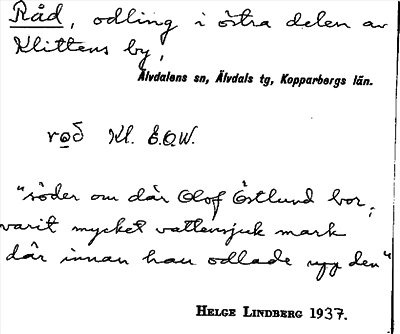 Råd, odling i östra delen av
Klittens by,
Älvdalens sn, Älvdals tg, Kopparbergs län.
ro̲ð Kl. E.O.W.
"söder om där Olof Östlund bor,
varit mycket vattensjuk mark
där innan han odlade upp den"
HELGE LINDBERG 1937.